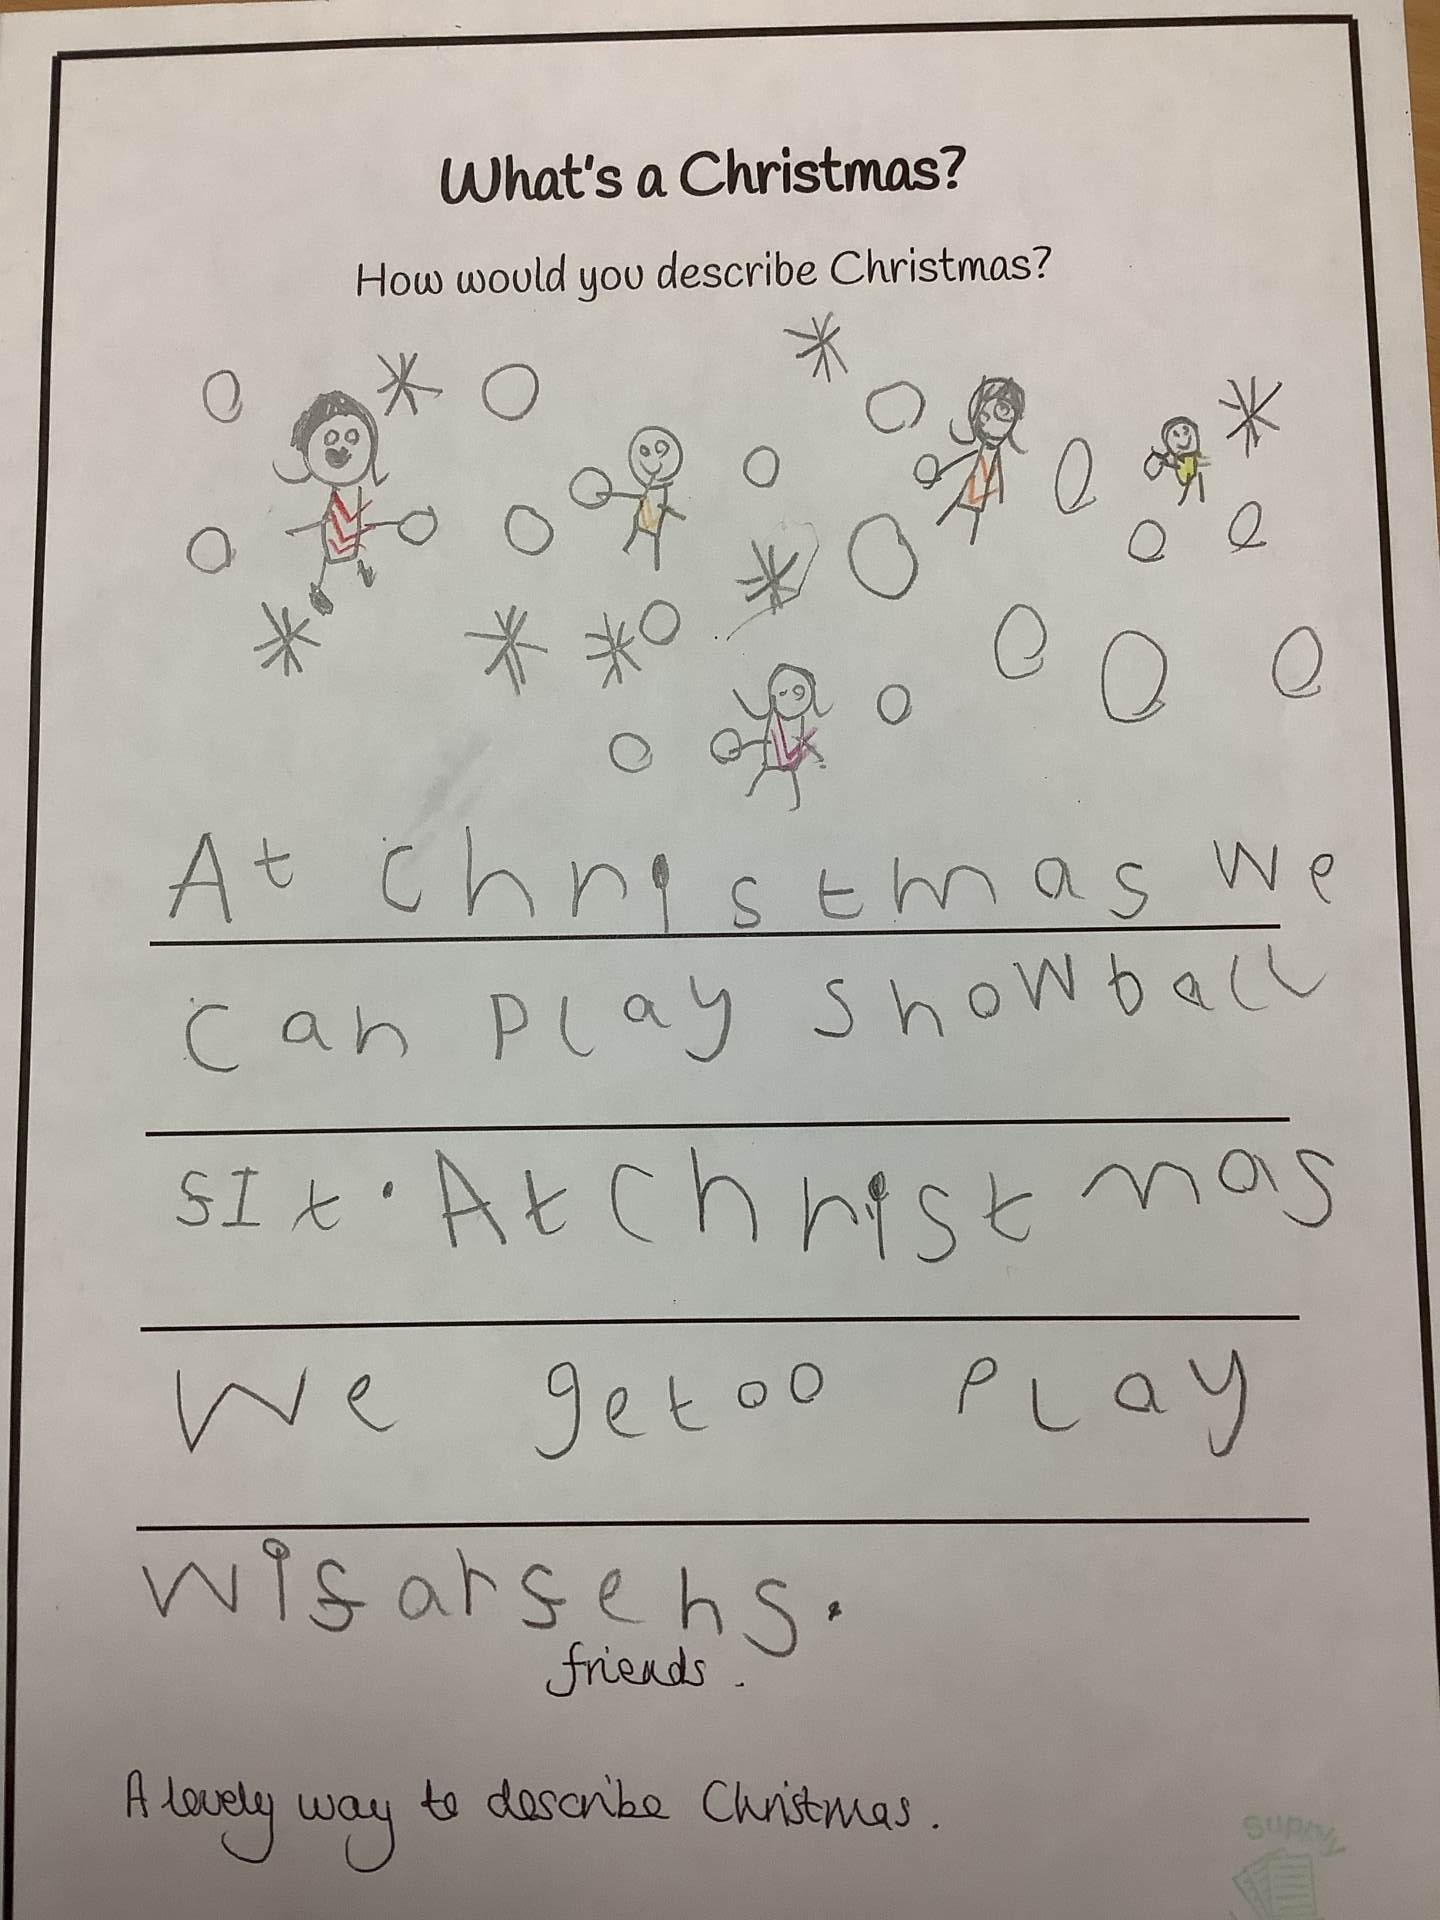 What's a Christmas?
How would you describe Christmas?
At christmas we
can play snowball
fIt. At Christmas
We getoo play
wif arfens.
friends.
A lovely way to describe Christmas.
Supply